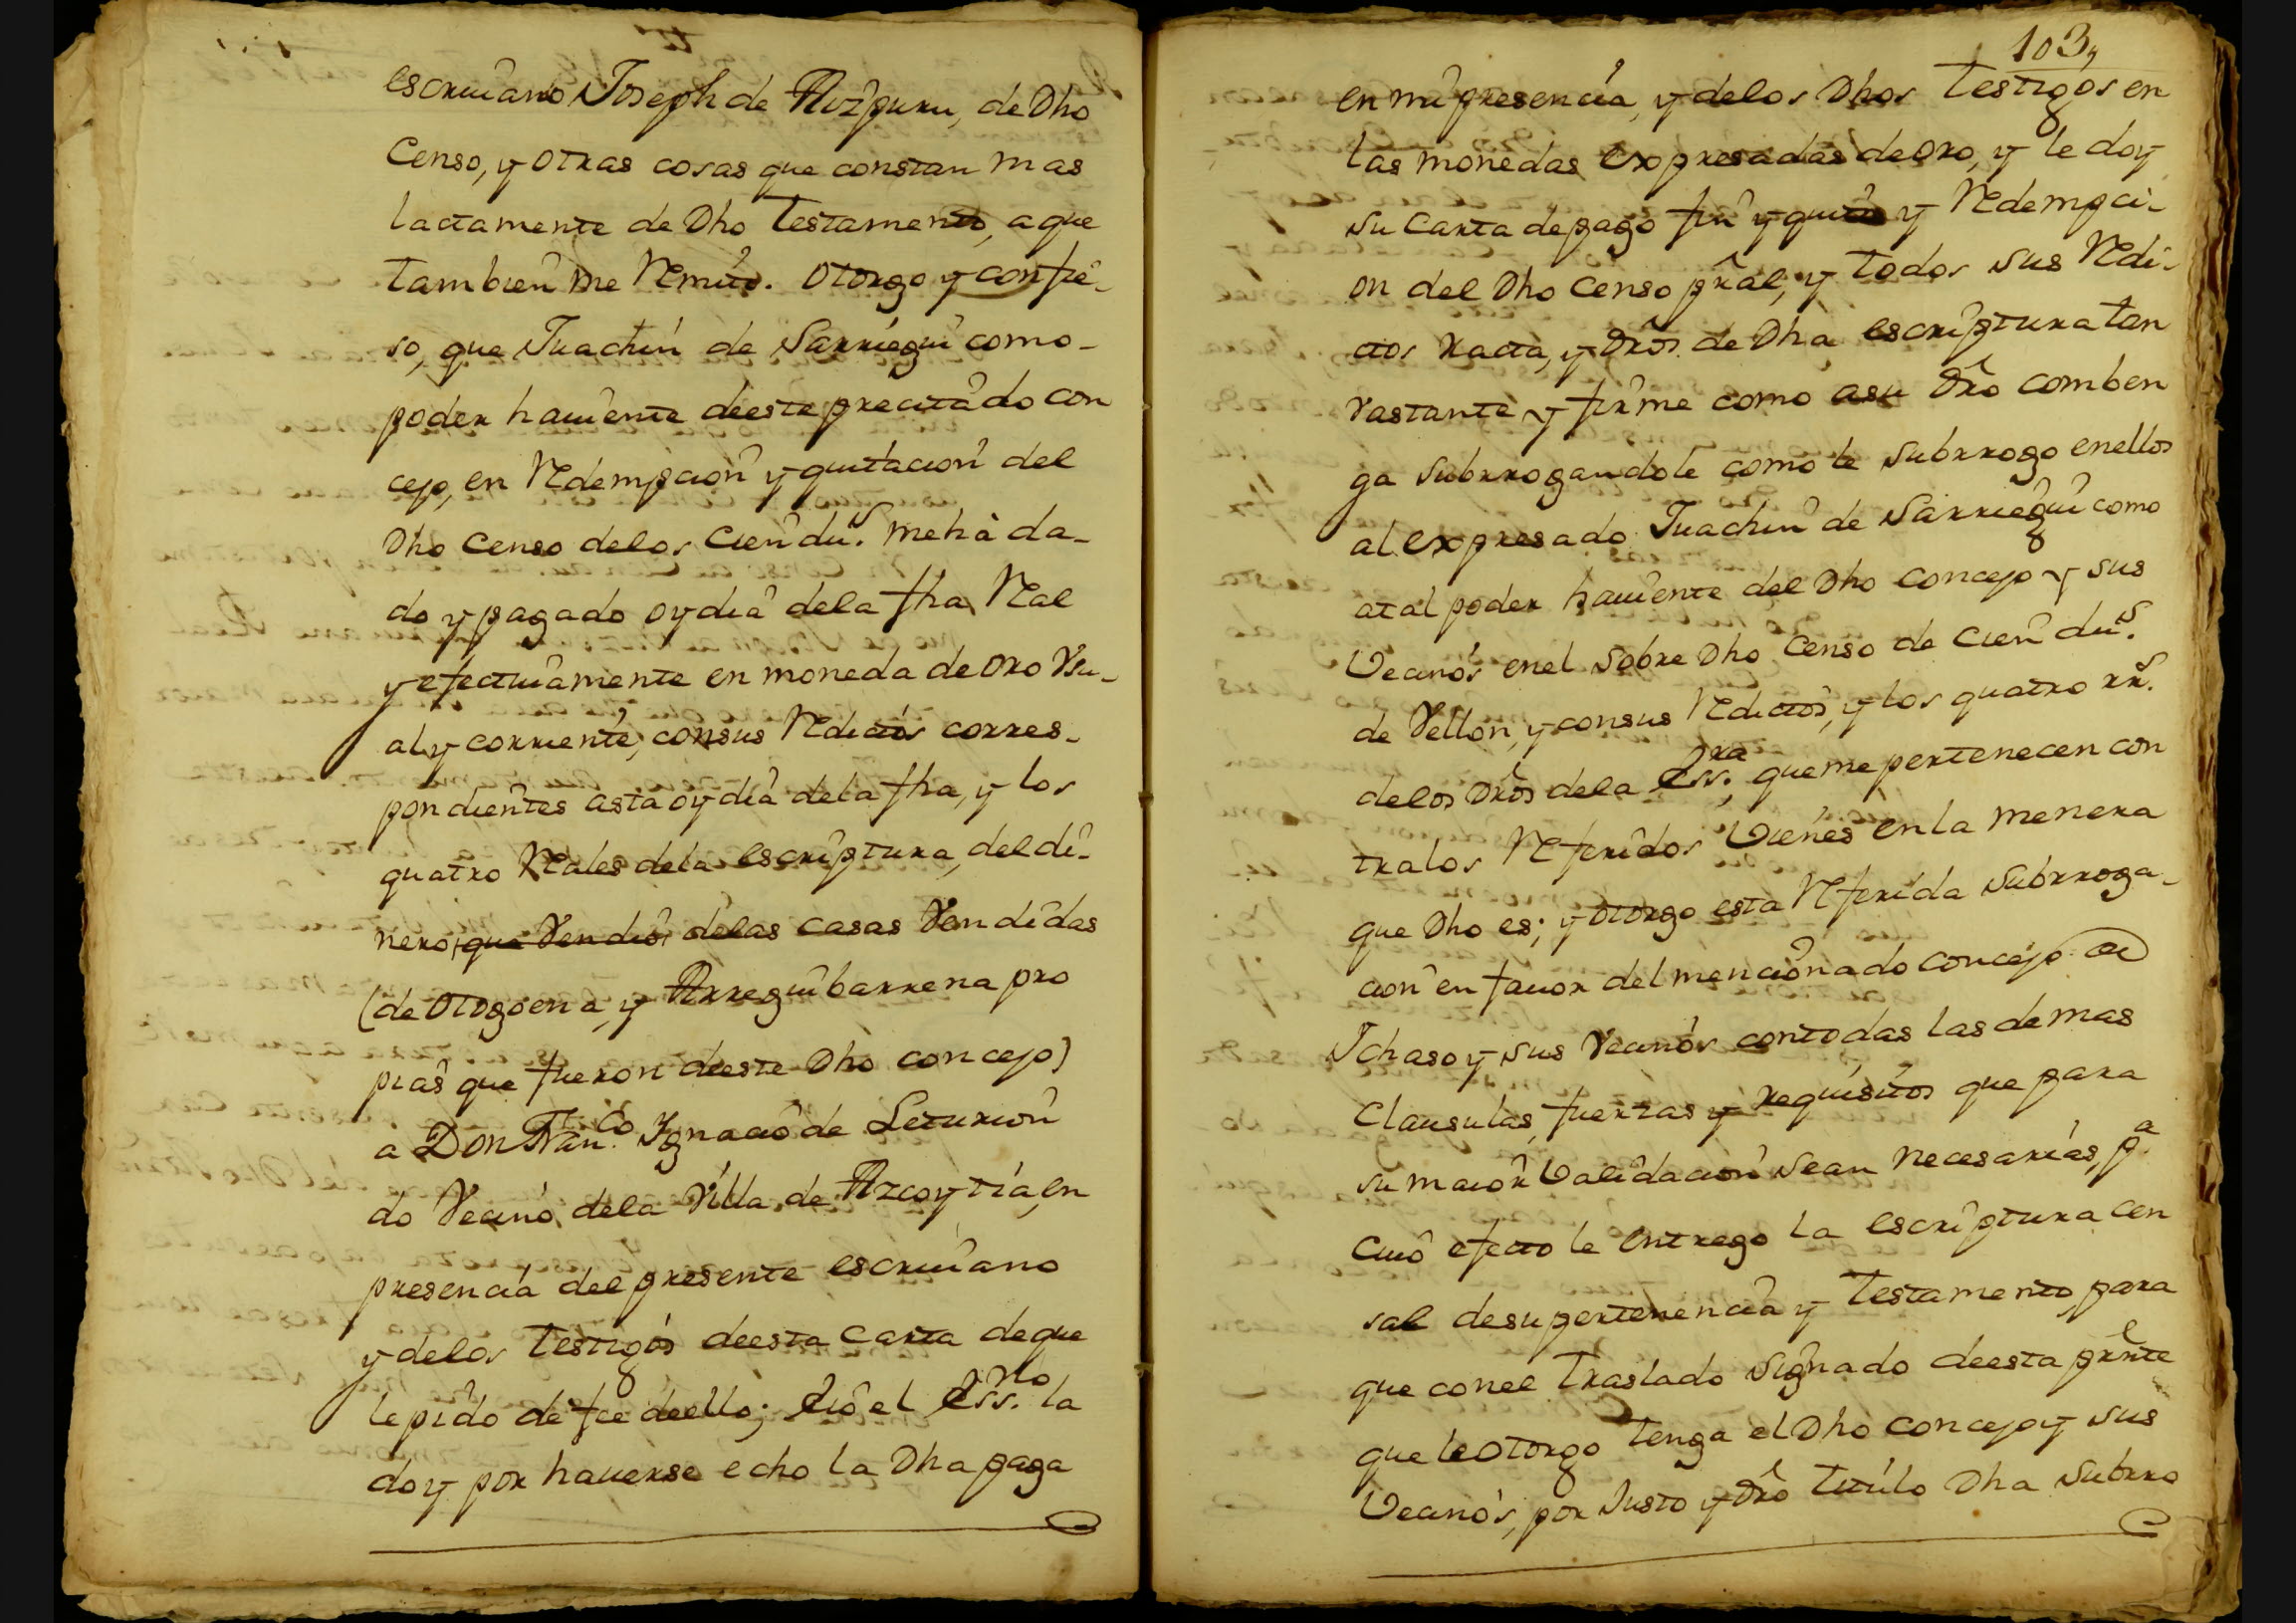 escriuano Joseph de Aizpuru, de Dho
Censo, y otras cosas que constan mas
lactamente de Dho testamento, a que
tambien me Remito. Otorgo y confie-
so, que Juachin de Sarriegui como-
poder hauiente deeste precitado con
cejo, en Redempcion y quitacion del
Dho Censo delos Cien dus. mehà da-
do y pagado oy dia dela fha, Real
y efectiuamente en moneda de oro Vsu-
al y corriente, consus Redictos corres-
pondientes asta oy dia dela fha, y los
quatro Reales dela escriptura, del di-
nero, que Vendio, delas casas Vendidas
(de Otogoena, y Arreguibarrena pro
pias que fueron deeste Dho concejo)
a Don Franco. Ygnacio de Leturion
do Vecino dela Villa de Azcoytia, en
presencia del presente escriuano
y delos testigos deesta carta deque
lepido de fee deello; Eio el Essno. la
doy por hauerse echo la Dha paga
103,
en mi presencia, y delos Dhos testigos en
las monedas expresadas de oro, y le doy
su Carta de pago fin y quito y Redempci-
on del Dho Censo prâl, y todos sus Redi-
ctos Racta, y Drôs. de Dha escriptura tan
Vastante y firme como asu Drô comben
ga subrrogandole como le subrrogo enellos
al expresado Juachin de Sarriegui como
atal poder hauiente del Dho Concejo y sus
Vecinos enel sobre Dho Censo de Cien dus.
de Vellon, y consus Redictos, y los quatro rrs.
delos Drôs dela Essra. que me pertenecen con
tralos Referidos Vienes en la menera
que Dho es; y otorgo esta Referida subrroga-
cion en fauor del mencionado concejo de
Ychaso y sus Vecinos contodas las demas
Clausulas, fuerzas y requisitos que para
su maior Validacion sean necesarias, pa.
cuio efecto le entrego la escriptura cen
sal desu pertenencia y testamento, para
que conel traslado signado deesta prênte
que le otorgo tenga el Dho concejo y sus
Vecinos, por Justo y Drô titulo Dha subrro